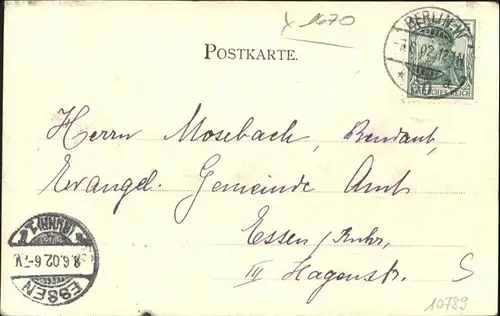 x 1670
POSTKARTE.
BERLIN W
7.6.02.
DEUTSCHES REICH
Herrn Mosebach, Rendant,
Evangel. Gemeinde Amt
Essen /Ruhr,
III Hagenstr.
S
ESSEN (RUHR) 1
8.6.02.6-7V.
10789